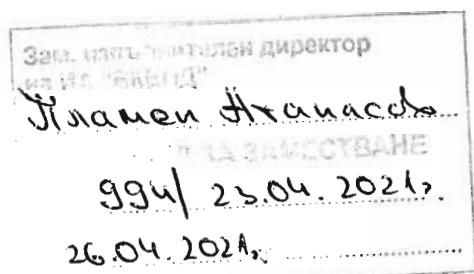 Зам. изпълнителен директор
на ИА
Пламен Атанасов
ЗА ЗАМЕСТВАНЕ
994/ 23.04.2021г.
26.04.2021г.